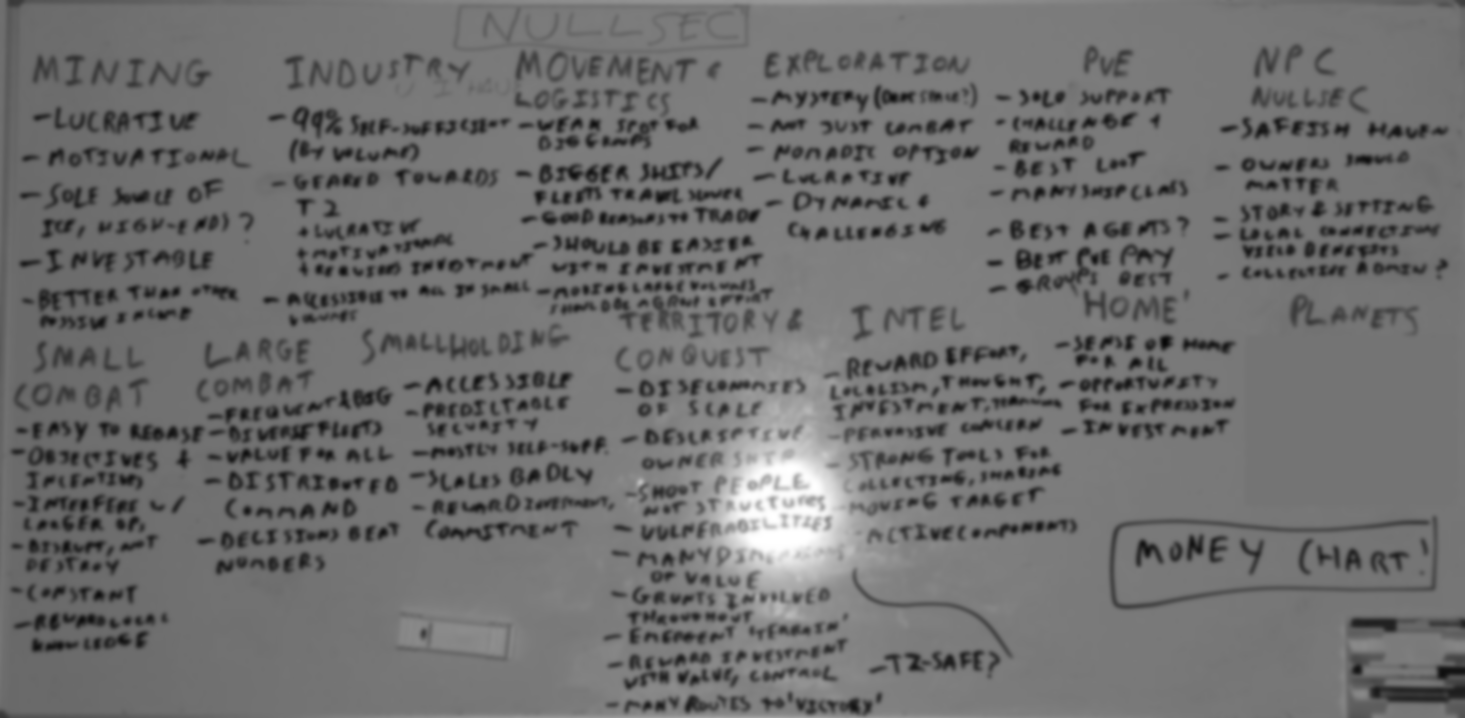 NULLSEC
MINING
- LUCRATIVE
- MOTIVATIONAL
- SOLE SOURCE OF
ICE, HIGH-END) ?
- INVESTABLE
- BETTER THAN OTHER
PASSIVE INCOME
INDUSTRY
- 99% SELF-SUFFICIENT
(BY VOLUME)
- GEARED TOWARDS
T2
+ LUCRATIVE
+ MOTIVATIONAL
+ REQUIRES INVESTMENT
- ACCESSIBLE TO ALL IN SMALL
VOLUMES
MOVEMENT &
LOGISTICS
- WEAK SPOT FOR
BIG GROUPS
- BIGGER SHIPS/
FLEETS TRAVEL SLOWER
- GOOD REASONS TO TRADE
- SHOULD BE EASIER
WITH INVESTMENT
- MOVING LARGE VOLUMES
SHOULD BE A GROUP EFFORT
EXPLORATION
- MYSTERY
- NOT JUST COMBAT
- NOMADIC OPTION
- LUCRATIVE
- DYNAMIC &
CHALLENGING
PVE
- SOLO SUPPORT
- CHALLENGE &
REWARD
- BEST LOOT
- MANY SHIP CLASS
- BEST AGENTS?
- BEST PVE PAY
- GROUPS BEST
NPC
NULLSEC
- SAFEISH HAVEN
- OWNERS SHOULD
MATTER
- STORY & SETTING
- LOCAL CONNECTIONS
YIELD BENEFITS
- COLLECTIVE ADMIN?
SMALL
COMBAT
- EASY TO REBASE
- OBJECTIVES &
INCENTIVES
- INTERFERE W/
LARGER OP.
- DISRUPT, NOT
DESTROY
- CONSTANT
- REWARD LOCAL
KNOWLEDGE
LARGE
COMBAT
- FREQUENT & BIG
- DIVERSE FLEETS
- VALUE FOR ALL
- DISTRIBUTED
COMMAND
- DECISIONS BEAT
NUMBERS
SMALLHOLDING
- ACCESSIBLE
- PREDICTABLE
SECURITY
- MOSTLY SELF-SUFF.
- SCALES BADLY
- REWARD INVESTMENT,
COMMITMENT
TERRITORY &
CONQUEST
- DISECONOMIES
OF SCALE
- DESCRIPTIVE
OWNERSHIP
- SHOOT PEOPLE
NOT STRUCTURES
- VULNERABILITIES
- MANY DIMENSIONS
OF VALUE
- GRUNTS INVOLVED
THROUGHOUT
- EMERGENT 'TERRAIN'
- REWARD INVESTMENT
WITH VALUE, CONTROL
- MANY ROUTES TO 'VICTORY'
- TZ-SAFE?
INTEL
- REWARD EFFORT,
LOCALISM, THOUGHT,
INVESTMENT,
- PERVASIVE CONCERN
- STRONG TOOLS FOR
COLLECTING, SHARING
- MOVING TARGET
- ACTIVE COMPONENTS
'HOME'
- SENSE OF HOME
FOR ALL
- OPPORTUNITY
FOR EXPRESSION
- INVESTMENT
PLANETS
MONEY CHART!